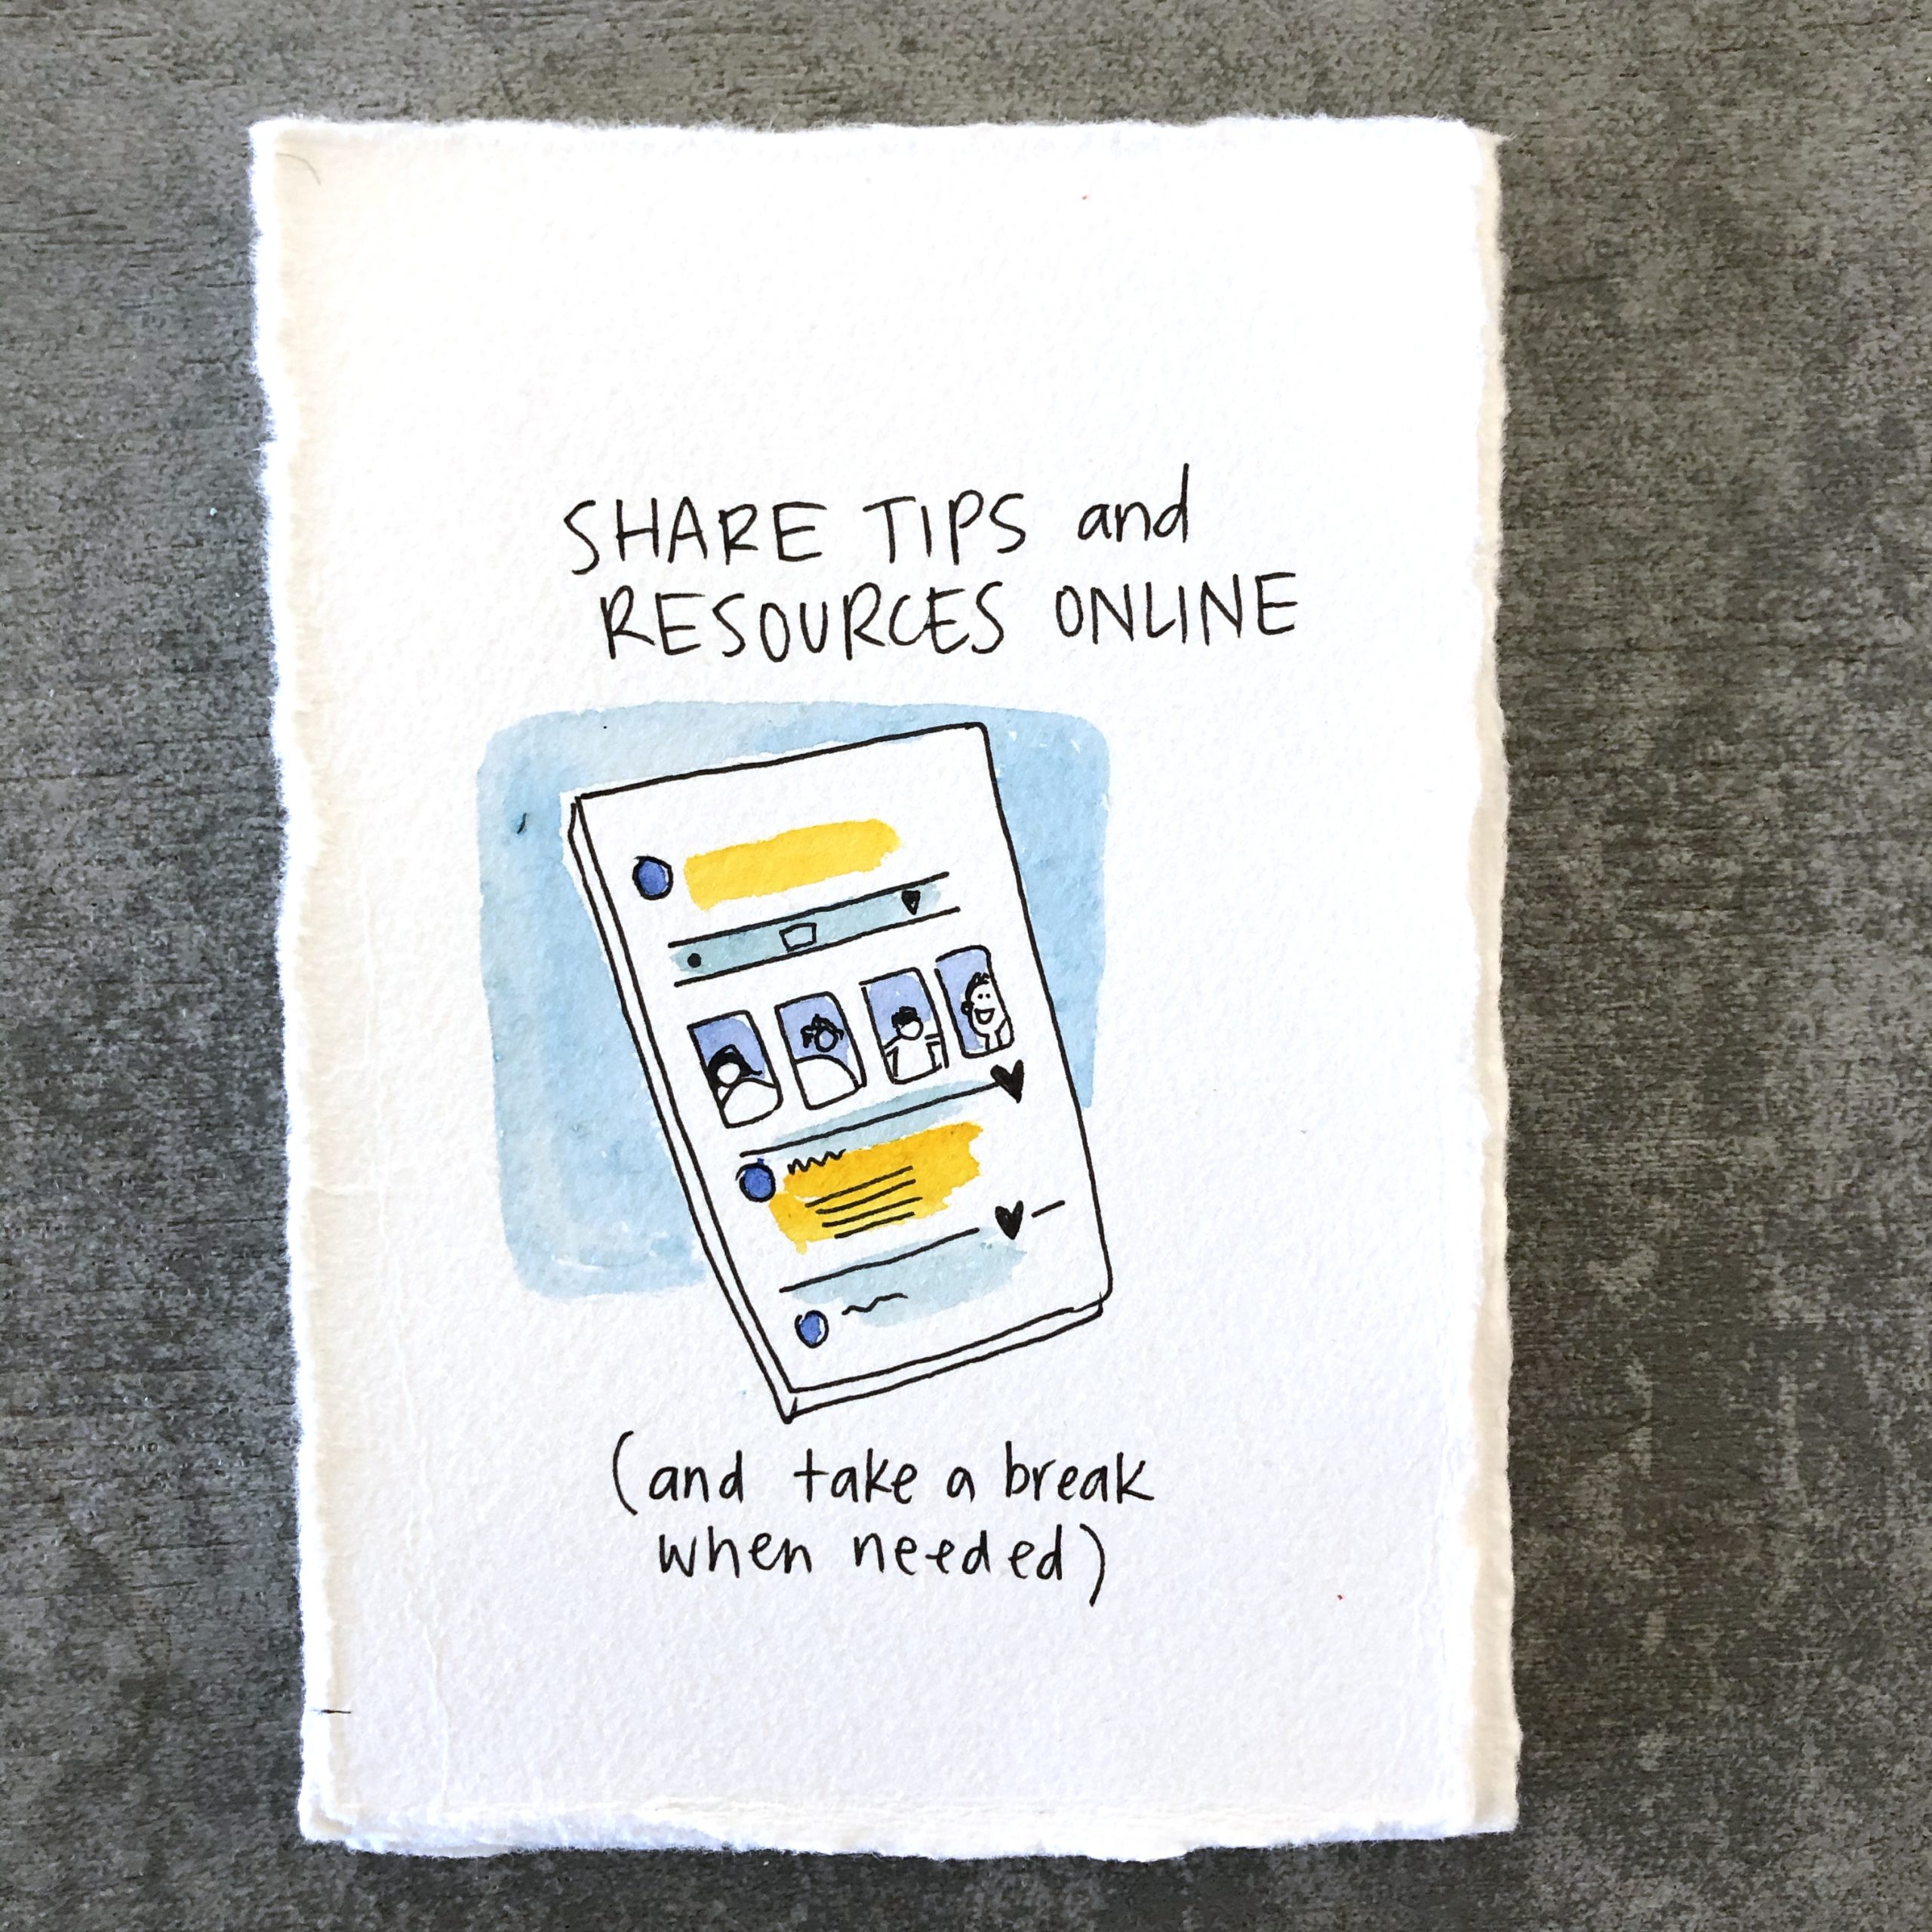 SHARE TIPS and
RESOURCES ONLINE
(and take a break
when needed)